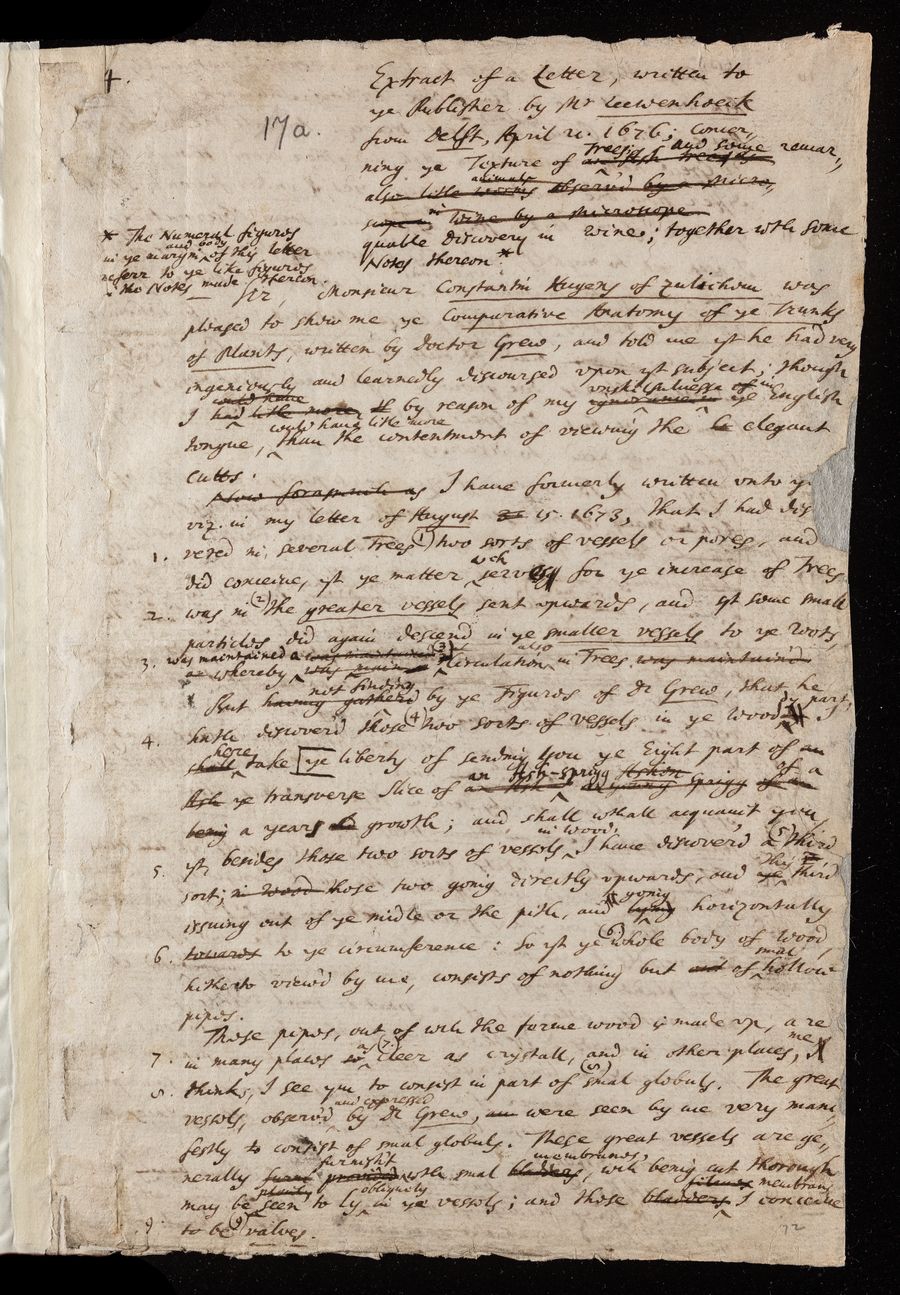 4.
17a.
Extract of a Letter, written to
ye Publisher by Mr Leewenhoeck
from Delft, April 21. 1676; concer,,
ning ye Texture of Trees, and some remar,,
also little animals observ'd by a Micro,,
scope in wine by a Microscope
quable discovery in Wine; together wth some
Notes thereon*
* The Numeral figures
in ye margin and body of this letter
referr to ye like figures
in the Notes made thereon.
Sr, Monsieur Constantin Hugens of Zulichom was
pleased to show me ye Comparative Anatomy of ye Trunks
of Plants, written by Doctor Grew, and told me yt he had very
ingeniously and learnedly discoursed upon yt subject; though
I could have had litle more by reason of my unskilfulnesse in ye English
tongue, would have litle more than the contentment of viewing the elegant
cutts.
Now forasmuch as I have formerly written unto y
viz. in my letter of August 15. 1673, That I had dis
1. vered in several Trees (1) two sorts of vessels or pores, and
did conceive, yt ye matter wch serves for ye increase of Trees
2. was in (2) the greater vessels sent upwards, and yt some small
particles did again descend in ye smaller vessels to ye roots,
3. whereby was maintained a (3) Circulation also in Trees was maintain'd
But not finding having gather'd by ye Figures of Dr Grew, that he
4. hath discover'd those (4) two sorts of vessels in ye wood, I
shall here take ye liberty of sending you ye Eight part of an
Ash ye transverse slice of an Ash-sprigg of a
being a years growth; and shall withall acquaint you,
5. yt besides those two sorts of vessels in wood, I have discover'd a (5) third
sort; in wood those two going directly upwards, and the third
issuing out of ye midle or the pith, and going horizontally
6. towards to ye circumference: so yt ye (6) whole body of wood,
hitherto view'd by me, consists of nothing but of smal hollow
pipes.
Those pipes, out of wch the forme wood is made up, are
7. in many places as (7) cleer as crystall, and in other places, me
8. thinks, I see ym to consist in part of (8) smal globuls. The great
vessels, observ'd and expressed by Dr Grew, were seen by me very mani,,
festly to consist of smal globuls. These great vessels are ge,,
nerally furnisht provided wth smal membranes, wch being cut thorough
may be plainly seen to ly obliquely in ye vessels; and those membrans I conceive
9. to be (9) valves.
72